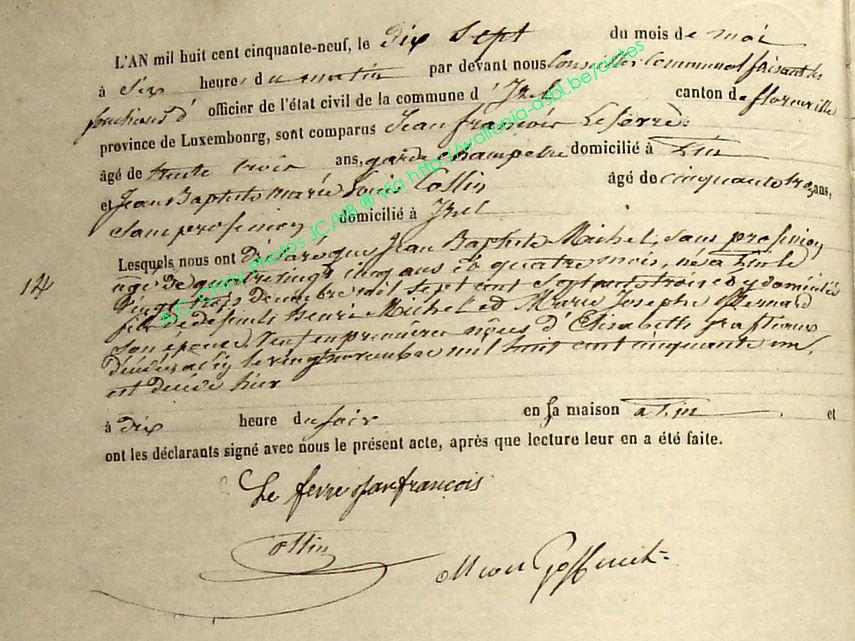 L'AN mil huit cent cinquante-neuf, le dix sept du mois de mai
à six heures du matin par devant nous Conseiller Communal faisant les
fonctions d' officier de l'état civil de la commune d'Izel canton de florenville
province de Luxembourg, sont comparus Jean françois Lefèvre
âgé de trente trois ans, garde champetre domicilié à
et Jean Baptiste marie Louis Collin âgé de cinquante ans,
Sans profession domicilié à Izel
Lesquels nous ont déclaré que Jean Baptiste Michel, sans profession
âgé de quatre vingt cinq ans et quatre mois, né à le
vingt trois décembre mil sept cent Septante trois et y domicilié
14
fils de défunts Henri Michel et Marie Josephe Bernard
son épouse, Veuf en premières nôces d'Elisabeth
décédée à le vingt novembre mil huit cent cinquante un,
est décédé hier
à dix heure du soir en sa maison à et
ont les déclarants signé avec nous le présent acte, après que lecture leur en a été faite.
Le fevre jean françois
Collin
AC-Chiny Photos JC/MB @ via http://wallonia-asbl.be/actes